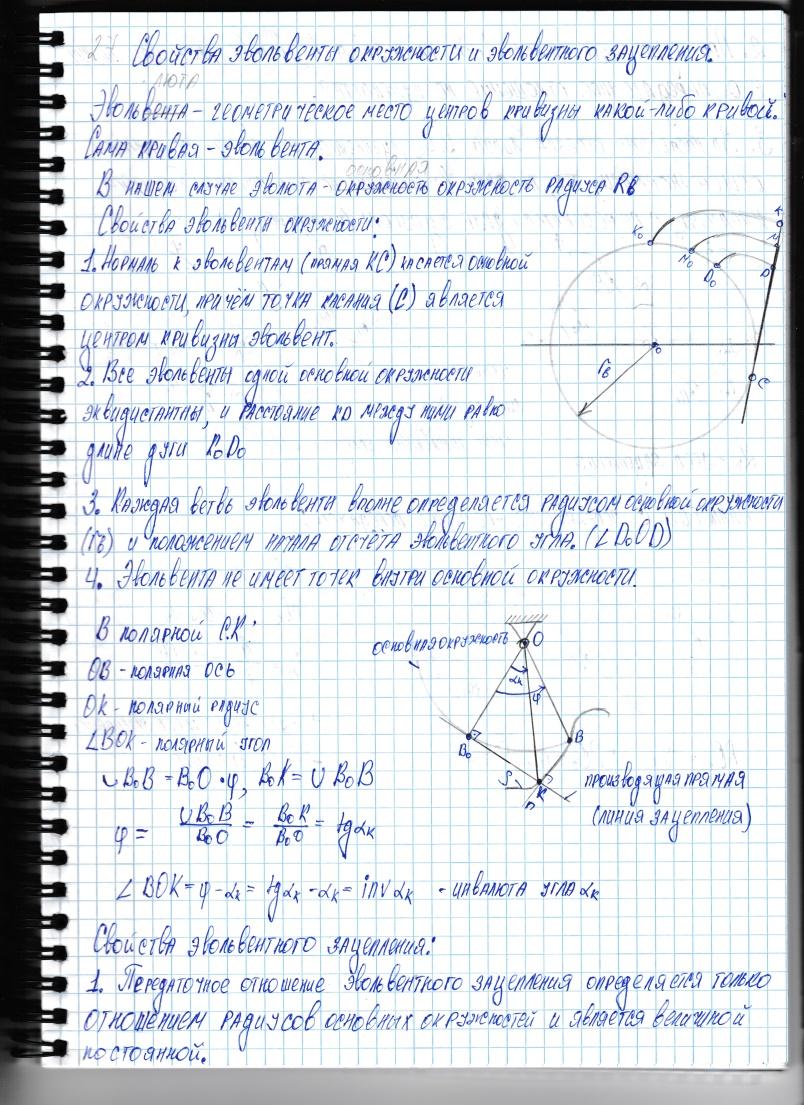 27. Свойства эвольвенты окружности и эвольвентного зацепления.
люта
Эвольвента - геометрическое место центров кривизны какой-либо кривой.
Сама кривая - эвольвента.
основная
В нашем случае эволюта - окружность окружность радиуса Rв
Свойства эвольвенты окружности:
1. Нормаль к эвольвентам (прямая КС) касается основной
окружности, причём точка касания (С) является
центром кривизны эвольвент.
2. Все эвольвенты одной основной окружности
эквидистантны, и расстояние KD между ними равно
длине дуги K₀D₀
K₀
M₀
D₀
K
M
D
O
rв
C
3. Каждая ветвь эвольвенты вполне определяется радиусом основной окружности
(rв) и положением начала отсчёта эвольвентного угла. (∠D₀OD)
4. Эвольвента не имеет точек внутри основной окружности.
В полярной С.К:
OB - полярная ось
OK - полярный радиус
∠BOK - полярный угол
∪B₀B = B₀O·φ, B₀K = ∪B₀B
φ = ∪B₀B/B₀O = B₀K/B₀O = tgαк
∠BOK = φ - αк = tgαк - αк = invαк - инвалюта угла αк
основная окружность
O
αк
φ
B₀
B
K
n
производящая прямая
(линия зацепления)
Свойства эвольвентного зацепления:
1. Передаточное отношение эвольвентного зацепления определяется только
отношением радиусов основных окружностей и является величиной
постоянной.